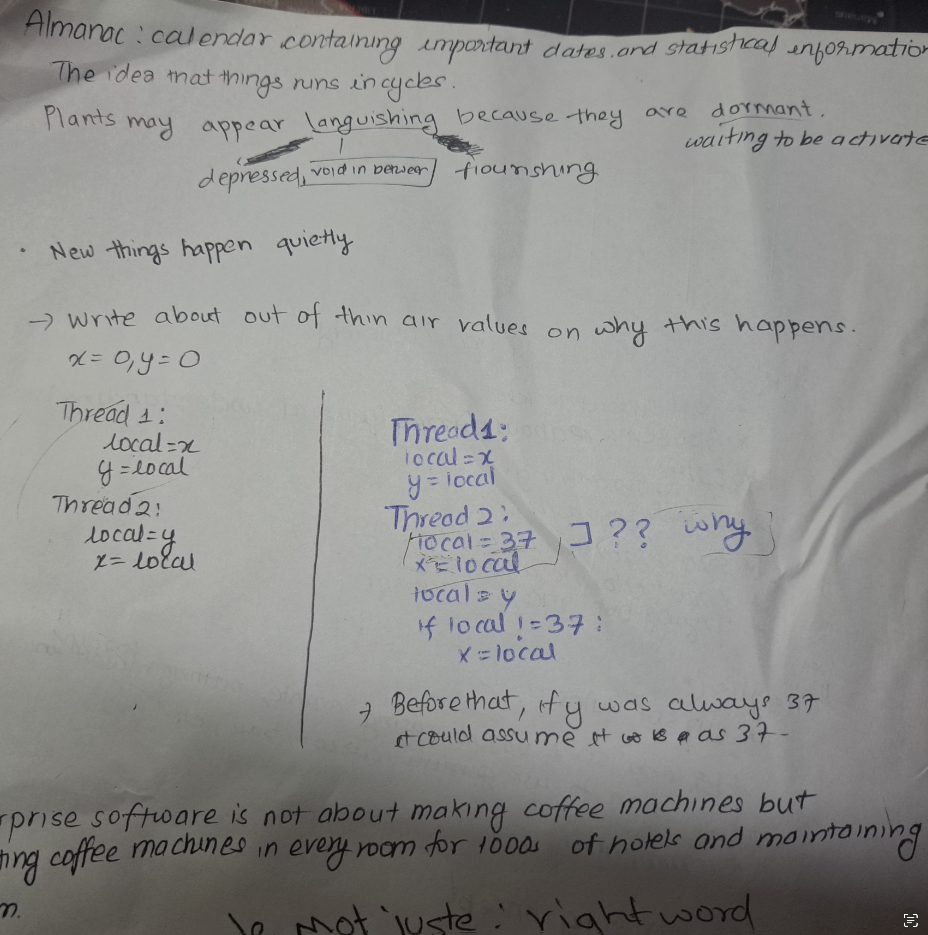 Almanac : calendar containing important dates and statistical information
The idea that things runs in cycles.
Plants may appear languishing because they are dormant.
waiting to be activate
depressed, void in between flourishing
· New things happen quietly
→ Write about out of thin air values on why this happens.
x = 0, y = 0
Thread 1:
local = x
y = local
Thread 2:
local = y
x = local
Thread 1:
local = x
y = local
Thread 2:
local = 37 ] ?? why
x = local
local = y
if local != 37 :
x = local
→ Before that, if y was always 37
it could assume it as 37 -
rprise software is not about making coffee machines but
ting coffee machines in every room for 1000s of hotels and maintaining
m.
le mot juste : right word